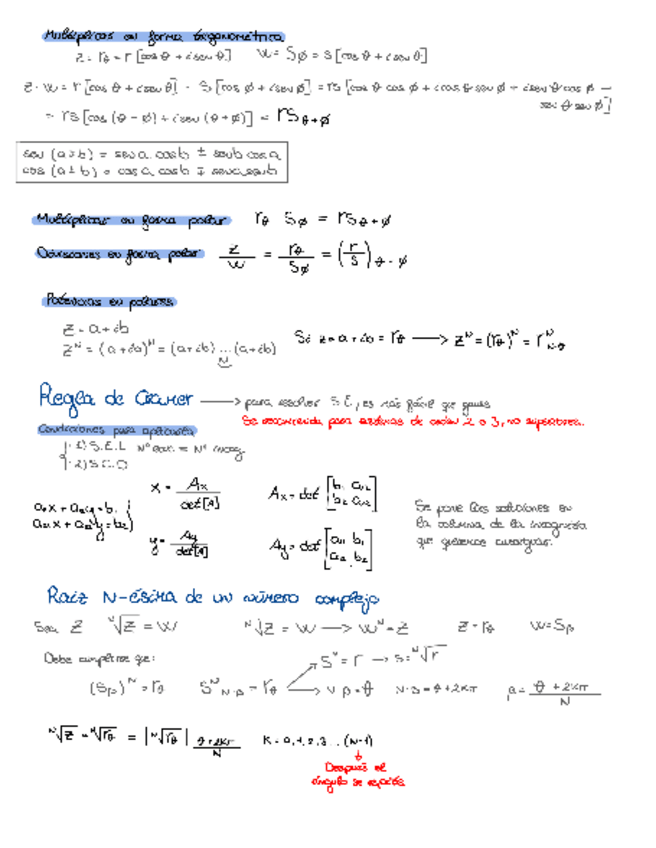 Multiplicar en forma trigonométrica
z = rθ = r [cos θ + i sen θ]   w = Sø = s [cos θ + i sen θ]
z · w = r [cos θ + i sen θ] · s [cos ø + i sen ø] = rs [cos θ cos ø + i cos θ sen ø + i sen θ cos ø −
sen θ sen ø]
= rs [cos (θ − ø) + i sen (θ + ø)] = rs θ+ø
sen (a ± b) = sen a · cos b ± sen b cos a
cos (a ± b) = cos a cos b ∓ sen a sen b
Multiplicar en forma polar   rθ Sø = rs θ+ø
Divisiones en forma polar   z/w = rθ/Sø = (r/s) θ - ø
Potencias en polares
z = a + ib
z^N = (a + ib)^N = (a + ib) ... (a + ib)   Si z = a + ib = rθ ⟶ z^N = (rθ)^N = r^N N·θ
N
Regla de Cramer ⟶ para resolver S.E., es más fácil que gauss
Se recomienda para sistemas de orden 2 o 3, no superiores.
Condiciones para aplicarla
1) S.E.L   Nº ecu. = Nº incog.
2) S.C.D
x = Ax / det[A]   Ax = det [b1 a12
b2 a22]
a11x + a12y = b1
a21x + a22y = b2
y = Ay / det[A]   Ay = det [a11 b1
a22 b2]
Se pone las soluciones en
la columna de la incognita
que queremos averiguar.
Raíz N-ésima de un número complejo
Sea z   ᴺ√z = w   ᴺ√z = w ⟶ w^N = z   z = rθ   w = Sβ
Debe cumplirse que:   S^N = r → s = ᴺ√r
(Sβ)^N = rθ   S^N N·β = rθ   N β = θ   N·β = θ + 2kπ   β = θ + 2kπ / N
ᴺ√z = ᴺ√rθ = |ᴺ√rθ| θ + 2kπ / N   K = 0, 1, 2, 3 ... (N−1)
Después el
ángulo se repite